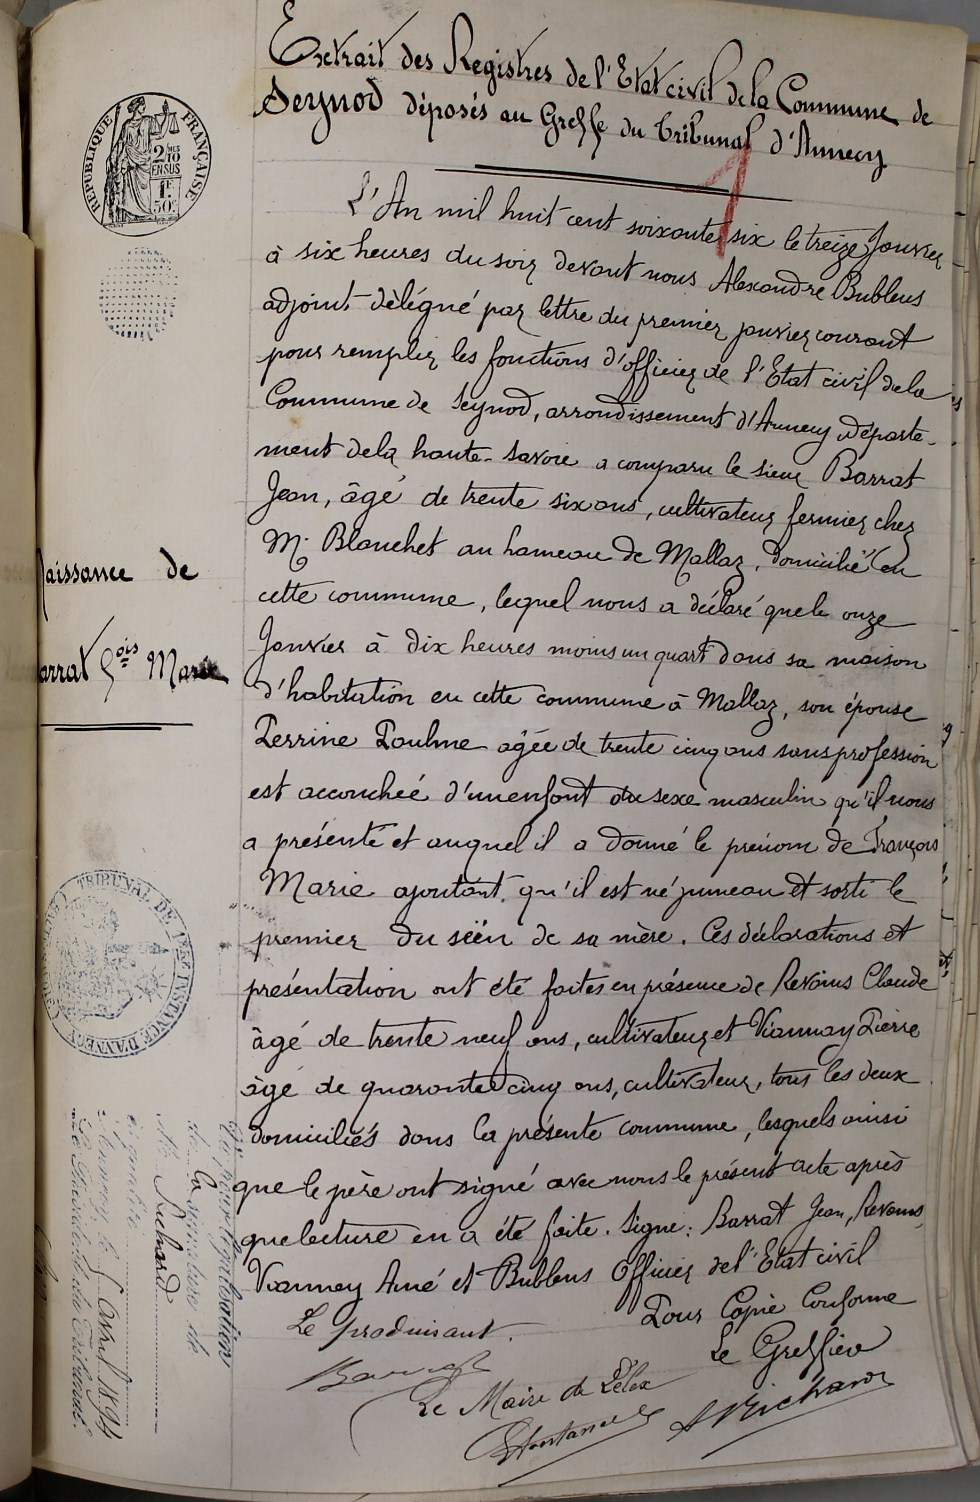 Extrait des Registres de l'Etat civil de la Commune de
Seynod déposés au Greffe du Tribunal d'Annecy
RÉPUBLIQUE FRANÇAISE
2/10
EN SUS
1F
50c
L'An mil huit cent soixante six le treize Janvier
à six heures du soir devant nous Alexandre Bublens
adjoint délégué par lettre du premier janvier courant
pour remplir les fonctions d'officier de l'Etat civil de la
Commune de Seynod, arrondissement d'Annecy Départe-
ment de la haute-Savoie a comparu le sieur Barrat
Jean, âgé de trente six ans, cultivateur fermier chez
Mr Blanchet au hameau de Mallaz, domicilié en
cette commune, lequel nous a déclaré que le onze
Janvier à dix heures moins un quart dans sa maison
d'habitation en cette commune à Mallaz, son épouse
Perrine Paulme agée de trente cinq ans sans profession
est accouchée d'un enfant du sexe masculin qu'il nous
a présenté et auquel il a donné le prénom de François
Marie ajoutant qu'il est né jumeau et sorti le
premier du seïn de sa mère. Ces déclarations et
présentation ont été faites en présence de Revains Claude
âgé de trente neuf ans, cultivateur et Viannay Pierre
âgé de quarante cinq ans, cultivateur, tous les deux
domiciliés dans la présente commune, lesquels ainsi
que le père ont signé avec nous le présent acte après
que lecture en a été faite. Signé: Barrat Jean, Revains,
Viannay Amé et Bublens Officier de l'Etat civil
Pour Copie Conforme
Le Greffier
Le produisant.
Le Maire de Lélex
Naissance de
Barrat Fçois Marie
TRIBUNAL DE 1ERE INSTANCE D'ANNECY
Vu pour légalisation
de la signature de
Me Richard
Annecy, le 5 Avril 1894
Le Président du Tribunal.